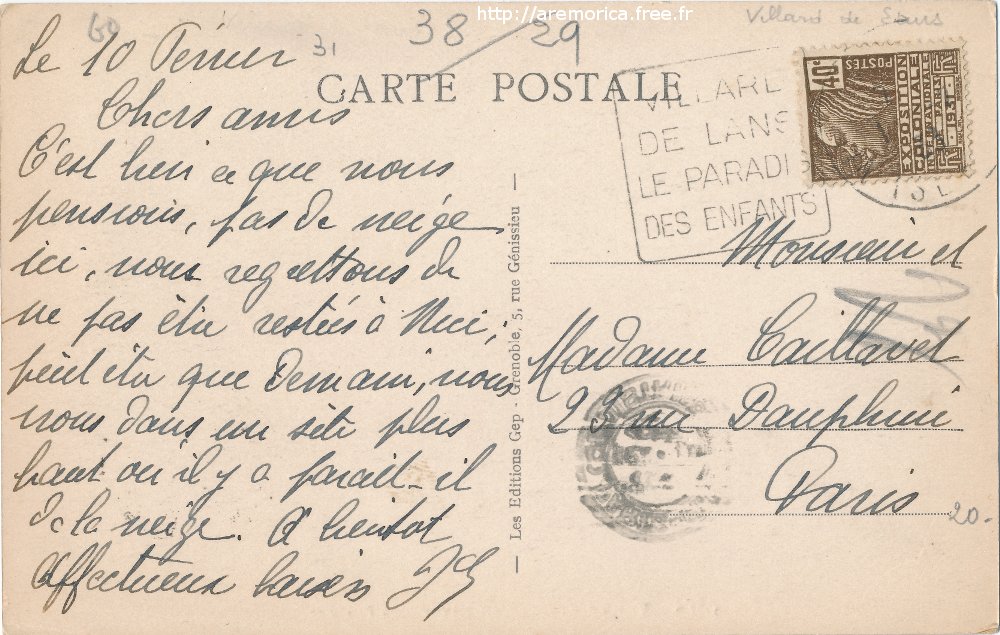 http://aremorica.free.fr
60
31
38/29
Villard de Lans
CARTE POSTALE
VILLARD
DE LANS
LE PARADI
DES ENFANTS
POSTES
40c
EXPOSITION
COLONIALE
INTERNATIONALE
PARIS
1931
ISÈ
Le 10 Février
Chers amis
C'est bien ce que nous
pensions, pas de neige
ici, nous regrettons de
ne pas être restés à Nice,
peut être que demain, nous
nous dans un site plus
haut ou il y a parait-il
de la neige. A bientot
Affectueux baisers
Les Editions Gep - Grenoble, 5, rue Génissieu
Monsieur et
Madame Caillavet
23 rue Dauphine
Paris
20-